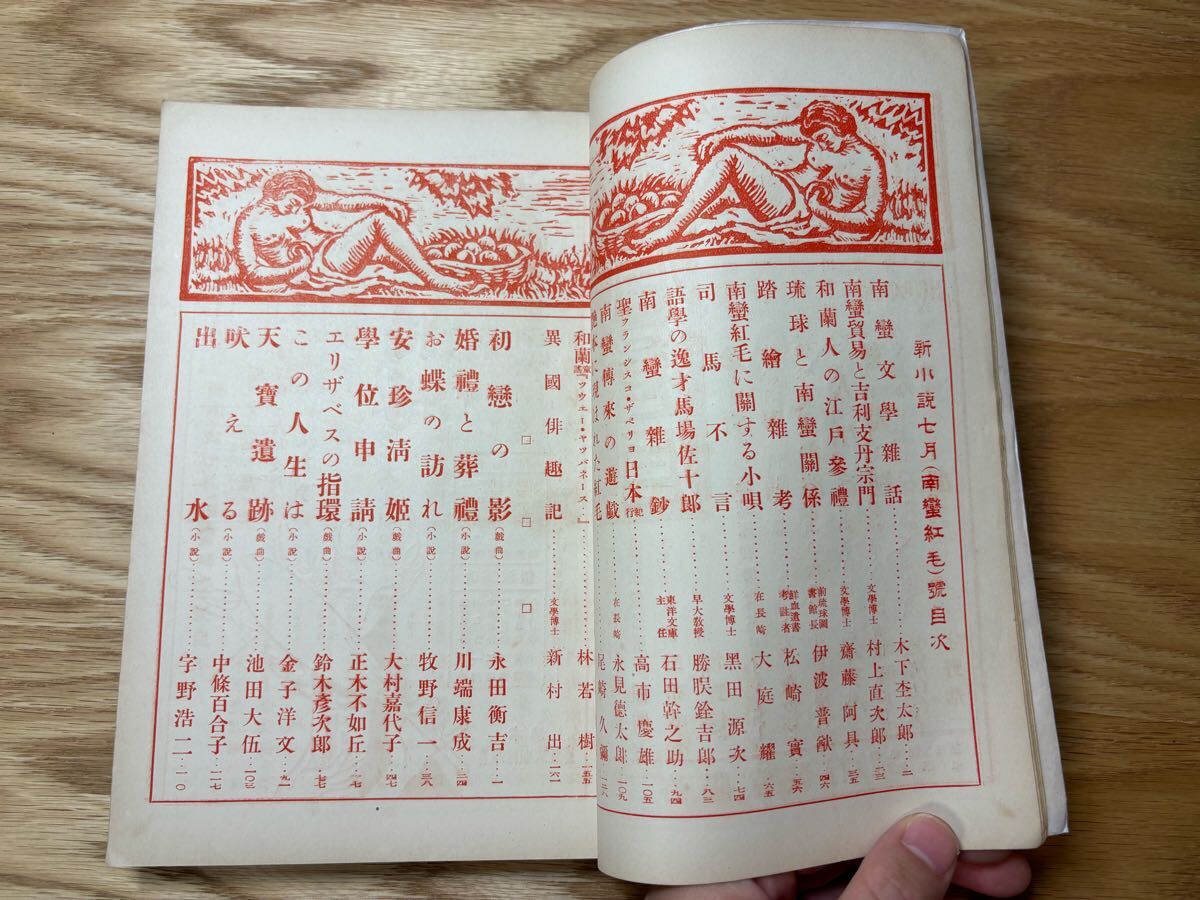 新小説七月(南蠻紅毛)號目次
南蠻文學雜話……木下杢太郎…二
南蠻貿易と吉利支丹宗門……文學博士 村上直次郎…二三
和蘭人の江戸參禮……文學博士 齋藤阿具…三五
琉球と南蠻關係……前琉球圖書館長 伊波普猷…四六
踏繪雜考……鮮血遺書考註者 松崎實…五六
南蠻紅毛に關する小唄……在長崎 大庭耀…六五
司馬不言……文學博士 黑田源次…七四
語學の逸才馬場佐十郎……早大敎授 勝俣銓吉郎…八三
南蠻雜鈔……東洋文庫主任 石田幹之助…九四
聖フランシスコ・ザベリヨ日本紀行……高市慶雄…一〇五
南蠻傳來の遊戯……在長崎 永見德太郎…一〇九
尾崎久彌…一二八
和蘭童謠『ウウエー・ヤツパネース』……林若樹…一五五
異國俳趣記……文學博士 新村出…一六一
□ □ □
初戀の影(戯曲)……永田衡吉…一
婚禮と葬禮(小説)……川端康成…二四
お蝶の訪れ(小説)……牧野信一…三八
安珍淸姫(戯曲)……大村嘉代子…四七
學位申請(小説)……正木不如丘…六七
エリザベスの指環(戯曲)……鈴木彥次郎…七七
この人生は(小説)……金子洋文…九一
天寶遺跡(戯曲)……池田大伍…一〇三
吠える……中條百合子…一一七
出水(小説)……宇野浩二…一一〇